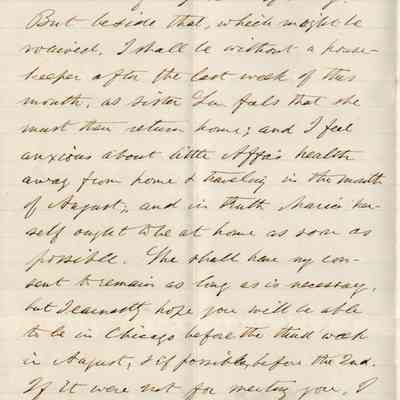 But beside that, which might be
waived, I shall be without a house-
keeper after the last week of this
month, as sister Lu feels that she
must then return home; and I feel
anxious about little Effa's health
away from home & traveling in the month
of August; and in truth Maria her-
self ought to be at home as soon as
possible. She shall have my con-
sent to remain as long as is necessary,
but I earnestly hope you will be able
to be in Chicago before the third week
in August, & if possible, before the 2nd.
If it were not for meeting you, I